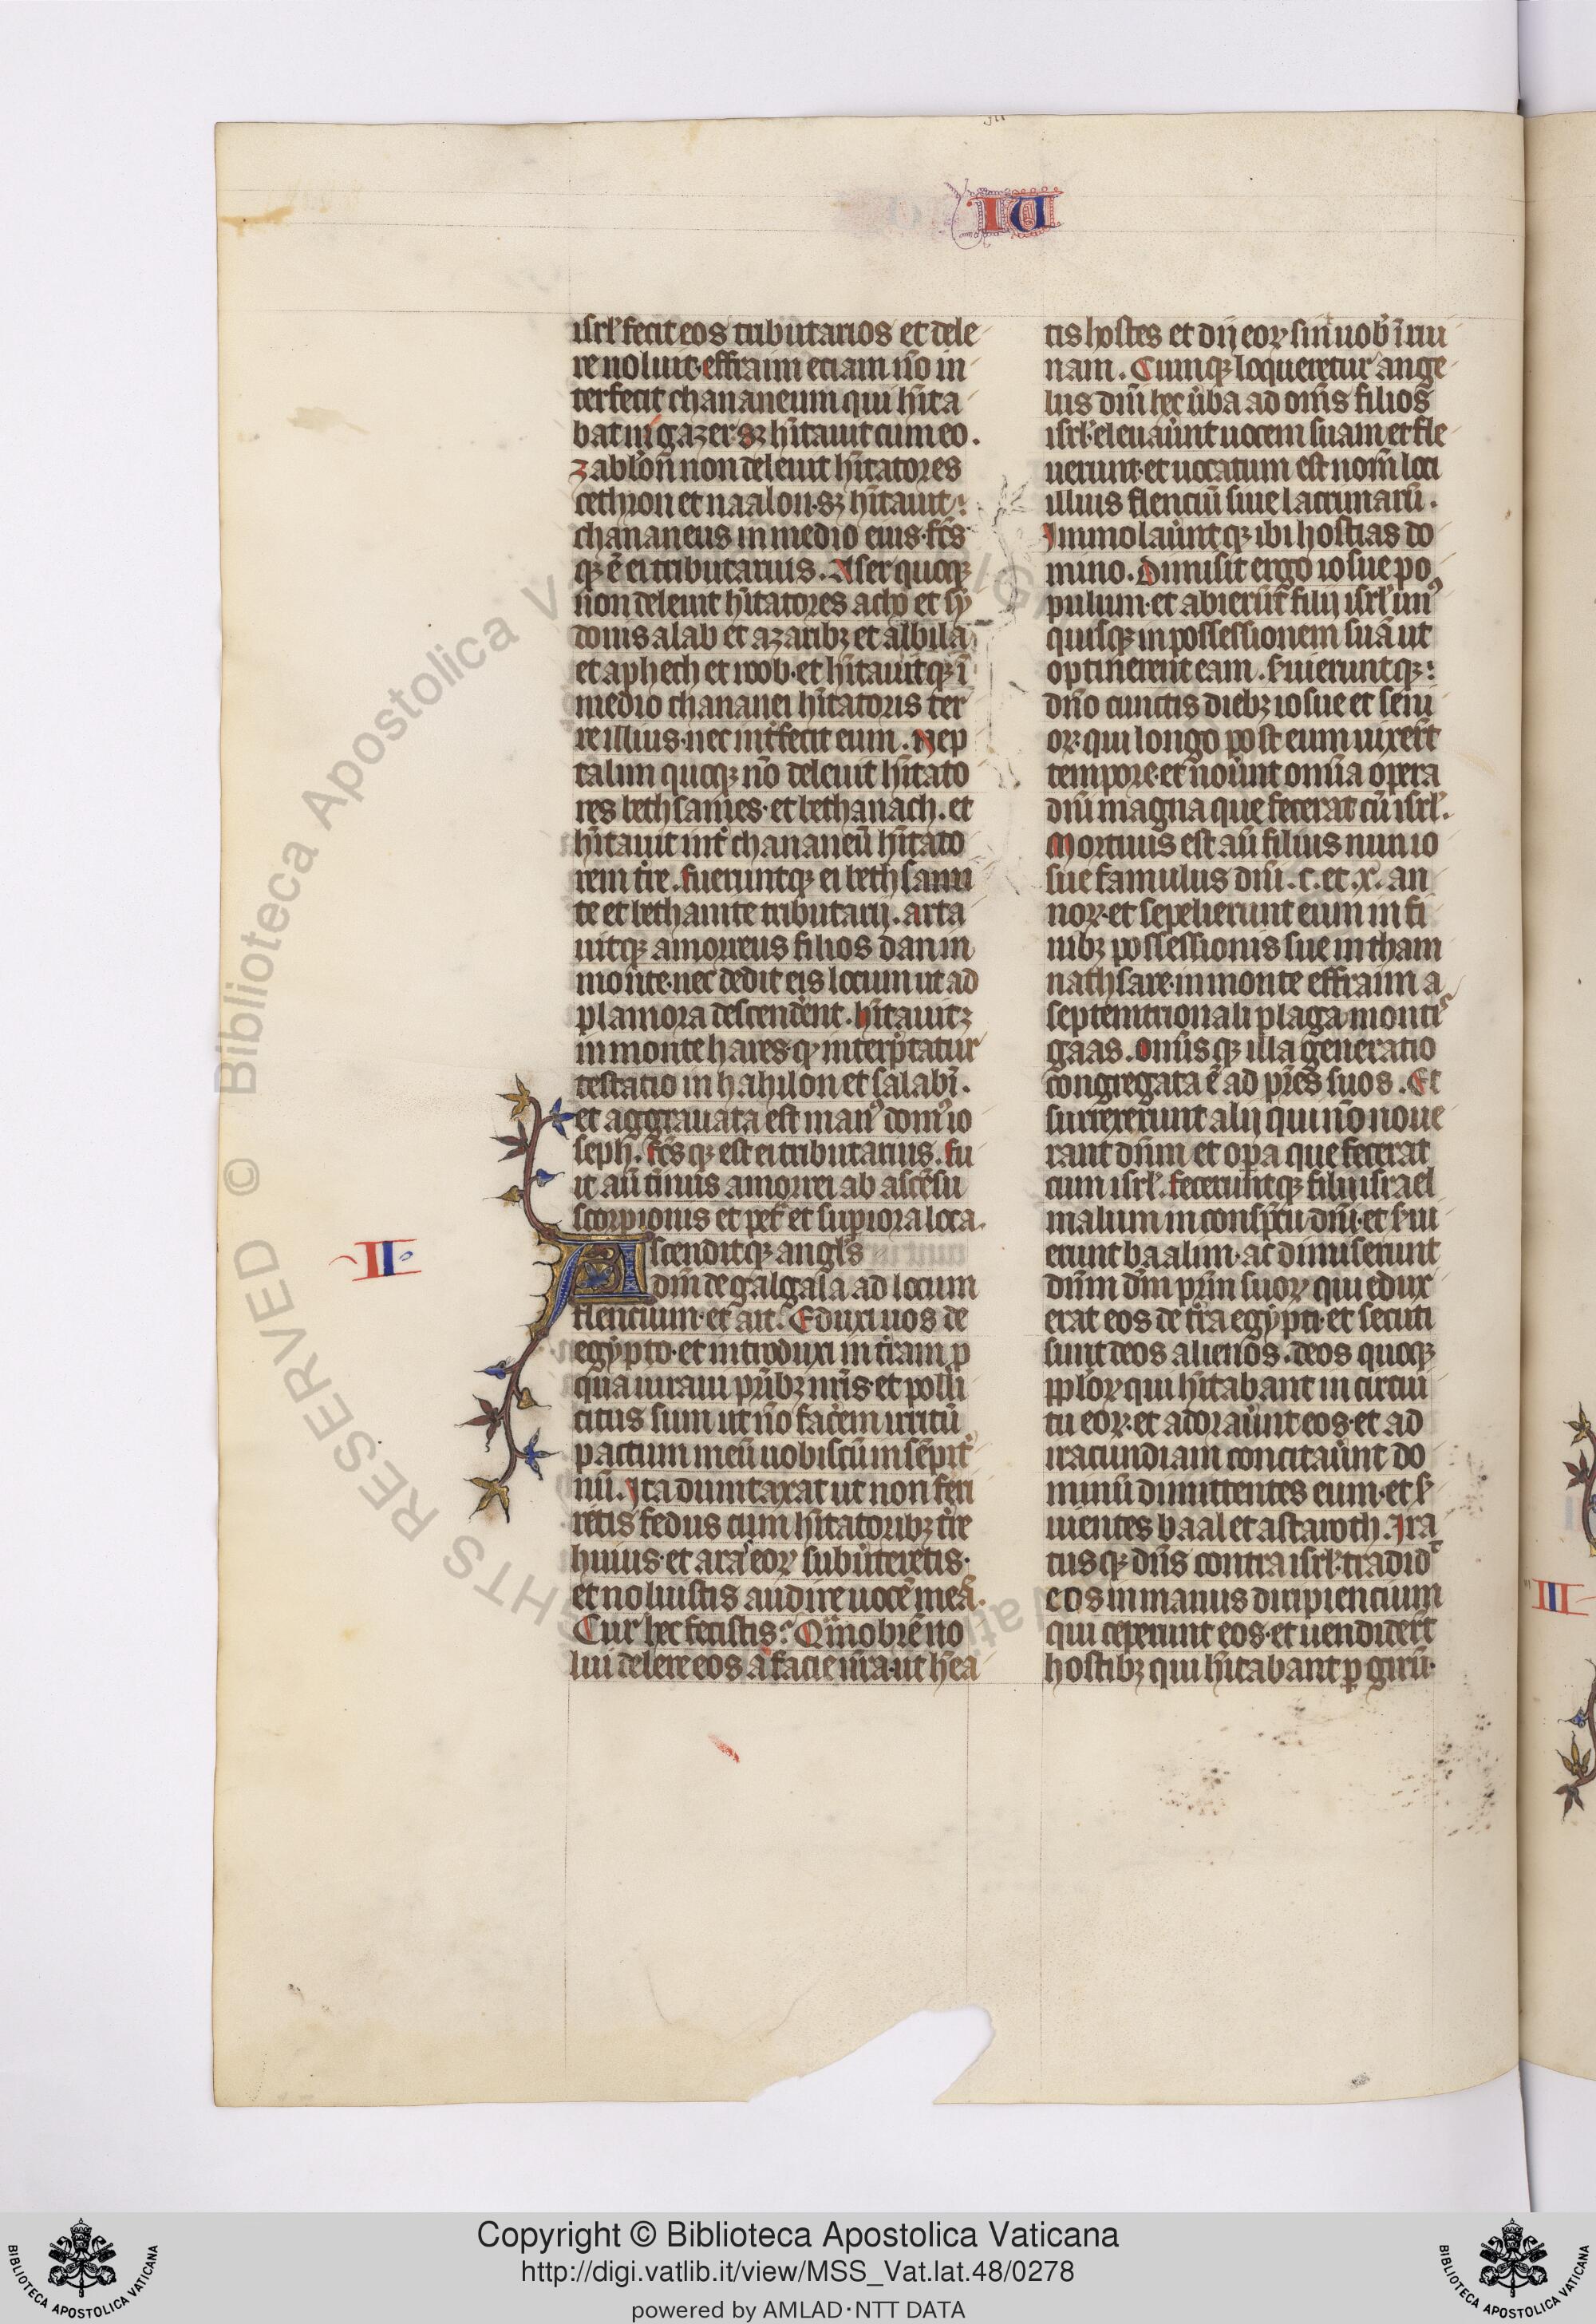 IU
isrl' fecit eos tributarios et dele
re noluit. effraim etiam nō in
terfecit chananeum qui hītа
bat in gazer sꝫ hītauit cum eo.
zablon non deleuit hītatores
cethron et naalon. sꝫ hītauit
chananeus in medio eius. fcs̄
qꝫ ē ei tributarius. Aser quoqꝫ
non deleuit hītatores acho et sy
donis alab et azazibꝫ et albila
et aphech et roob. et hītauitqꝫ ī
medio chananei hītatoris ter
re illius. nec int̾fecit eum. Nep
talim quoqꝫ nō deleuit hītato
res bethsames. et bethanach. et
hītauit int̾ chananeū hītato
rem t̾re. fueruntqꝫ ei bethsami
te et bethanite tributarij. arta
uitqꝫ amorreus filios dan in
monte. nec dedit eis locum ut ad
planiora descendēnt. hītauitqꝫ
in monte hares. qđ interp̄tatur
testatio in hahilon et salabī.
et aggrauata est man᾿ dom᾿ io
seph. fcs̄qꝫ est ei tributarius. fu
it aū t̾min᾿ amorrei ab ascēsu
scorpionis et pet̾ et sup̄iora loca.
II
Ascenditqꝫ angl's
dn̄i de galgala ad locum
flencium. et ait. Eduxi uos de
egypto. et introduxi in t̾ram p̄
qua iuraui prībꝫ nr̄is. et polli
citus sum ut nō facerem irritū
pactum meū uobiscū in sēpit̾
nū. Ita dumtaxat ut non feri
retis fedus cum hītatoribꝫ t̾re
huius. et aras eoꝝ subuerteretis.
et noluistis audire uocē meā.
Cur hec fecistis. Qm̄obrē no
lui delere eos a facie ur̄a. ut hēa
tis hostes et dij eoꝝ sint uob̾ ī rui
nam. Cumqꝫ loqueretur ange
lus dn̄i hec ūba ad om̄s filios
isrl' eleuaūnt uocem suam et fle
uerunt. et uocatum est nom̄ loci
illius flenciū siue lacrimarū.
Immolaūntqꝫ ibi hostias do
mino. Dimisit ergo iosue po
pulum. et abierūt filij isrl' un᾿
quisqꝫ in possessionem suā ut
optinerent eam. s̾uieruntqꝫ
dn̄o cunctis diebꝫ iosue et seni
oꝝ qui longo post eum uixer̄t
tempore. et noūnt omnia opera
dn̄i magna que fecerat cū isrl'.
Mortuus est aū filius nun io
sue famulus dn̄i. c. et. x. an
noꝝ. et sepelierunt eum in fi
nibꝫ possessionis sue in tham
nathsare. in monte effraim a
septemtrionali plaga montis
gaas. Omīsqꝫ illa generatio
congregata ē ad pr̄es suos. Et
surrexerunt alij qui nō noue
rant dn̄m et opa que fecerat
cum isrl'. feceruntqꝫ filij israel
malum in conspēu dn̄i. et s̾ui
erunt baalim. ac dimiserunt
dn̄m dm̄ prm̄ suoꝝ qui edux
erat eos de t̾ra egypti. et secuti
sunt deos alienos. deos quoqꝫ
pploꝝ qui hītabant in circui
tu eoꝝ. et adoraūnt eos. et ad
iracundiam concitaūnt do
minū dimittentes eum. et s̾
uientes baal et astaroth. Ira
tusqꝫ dn̄s contra isrl' tradidᵗ
eos in manus diripiencium
qui ceperunt eos. et uendider̄t
hostibꝫ qui hītabant ꝑ girū.
III
Copyright © Biblioteca Apostolica Vaticana
http://digi.vatlib.it/view/MSS_Vat.lat.48/0278
powered by AMLAD·NTT DATA
BIBLIOTECA APOSTOLICA VATICANA
BIBLIOTECA APOSTOLICA VATICANA